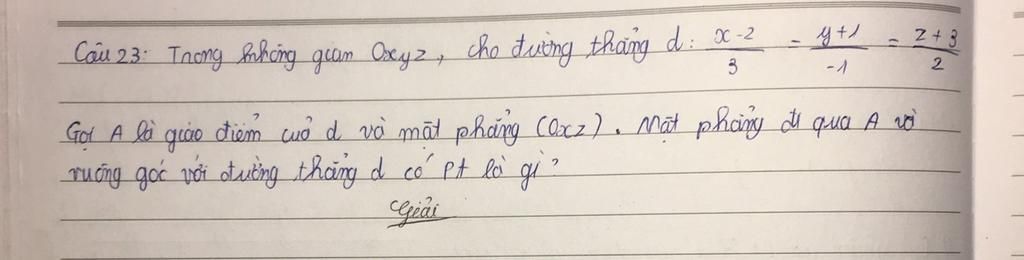 Câu 23: Trong không gian Oxyz, cho đường thẳng d: \frac{x-2}{3} = \frac{y+1}{-1} = \frac{z+3}{2}
Gọi A là giao điểm cuả d và mặt phẳng (Oxz). Mặt phẳng đi qua A và
vuông góc với đường thẳng d có pt là gì?
Giải